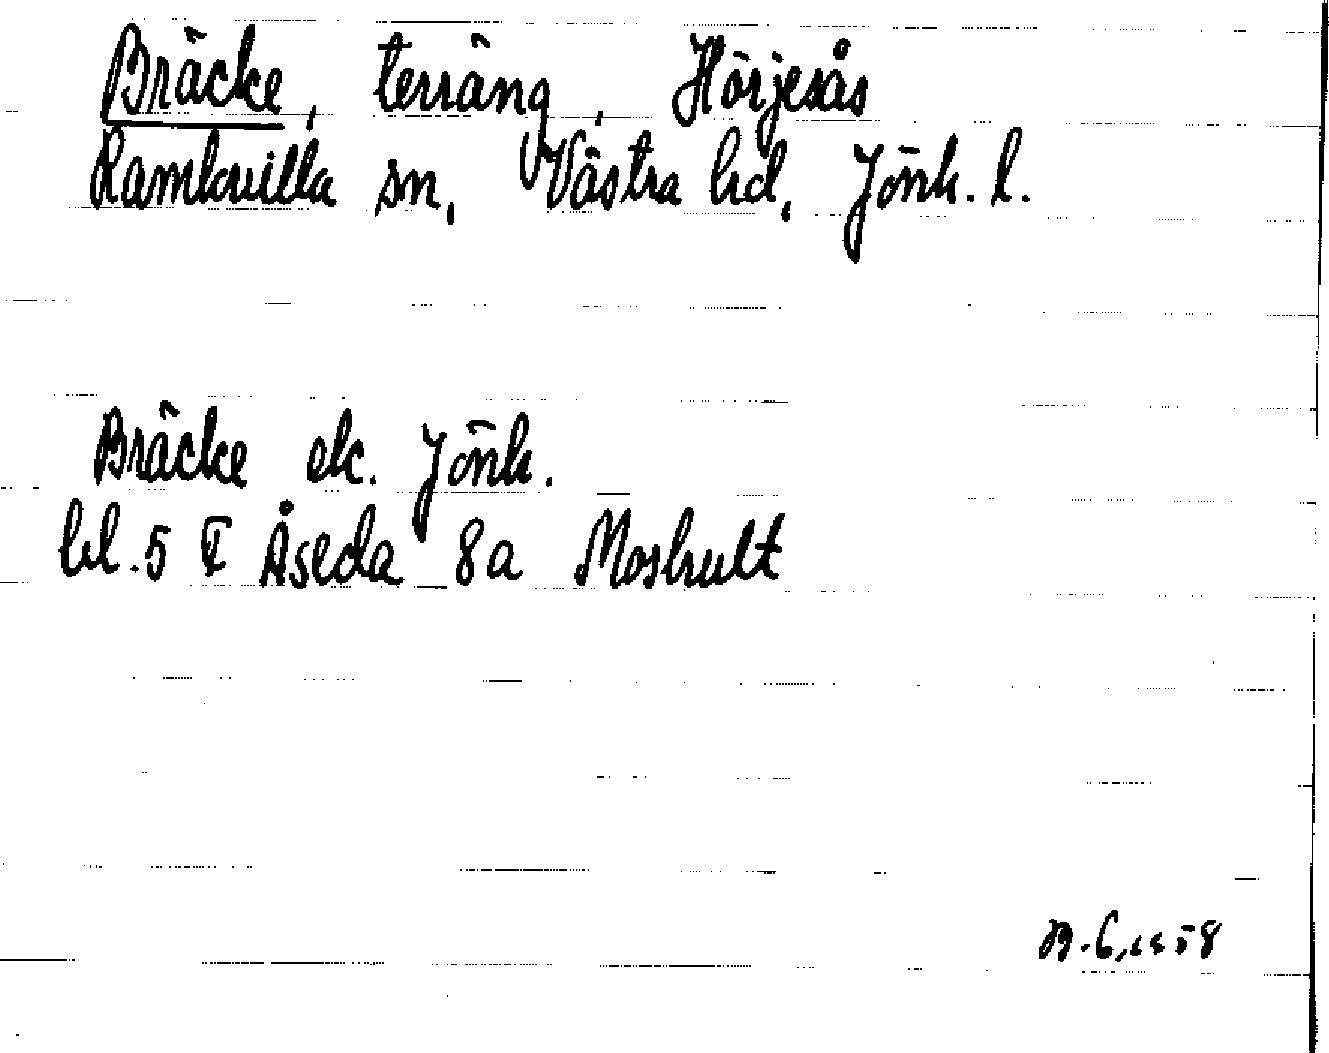 Bräcke, terräng, Hörjesås
Ramkvilla sn, Västra hd, Jönk. l.
Bräcke ek. Jönk.
bl. 5 I Åseda 8a Moshult